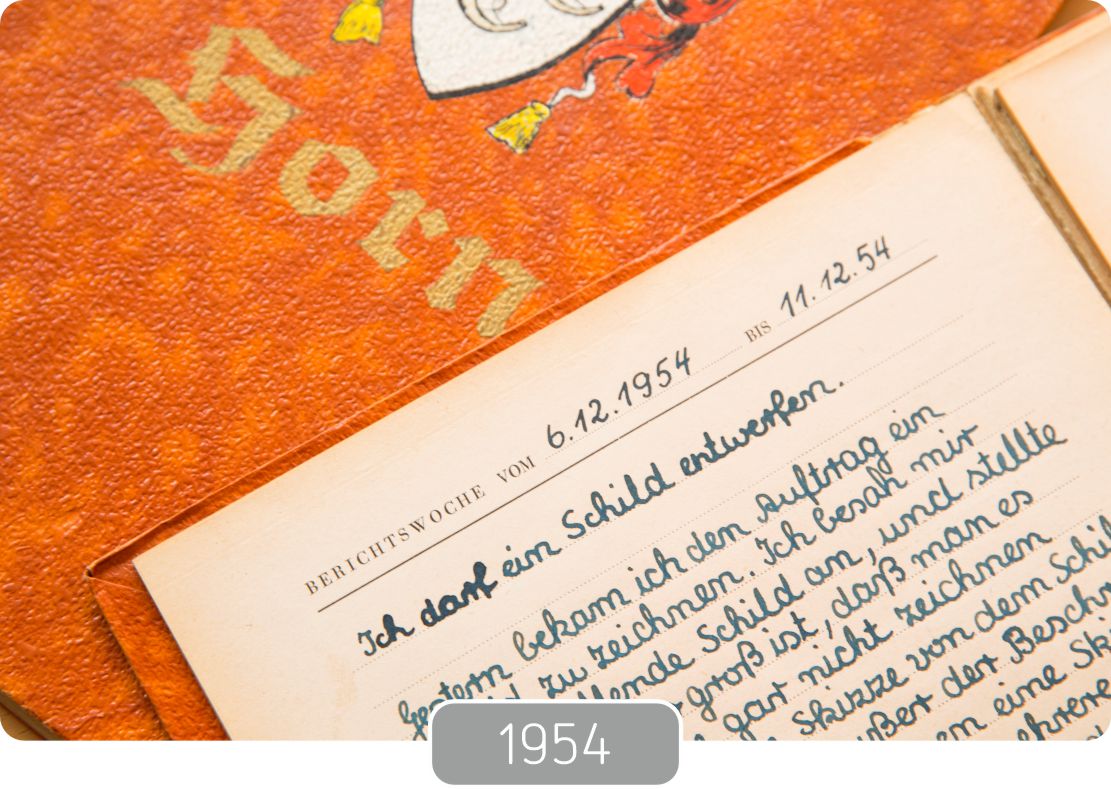 Horn
BERICHTSWOCHE VOM 6.12.1954 BIS 11.12.54
Ich darf ein Schild entwerfen.
Gestern bekam ich den Auftrag ein
zu zeichnen. Ich besah mir
Schild an, und stellte
groß ist, daß man es
gar nicht zeichnen
Skizze von dem Schil
der Besch
eine Ski
1954